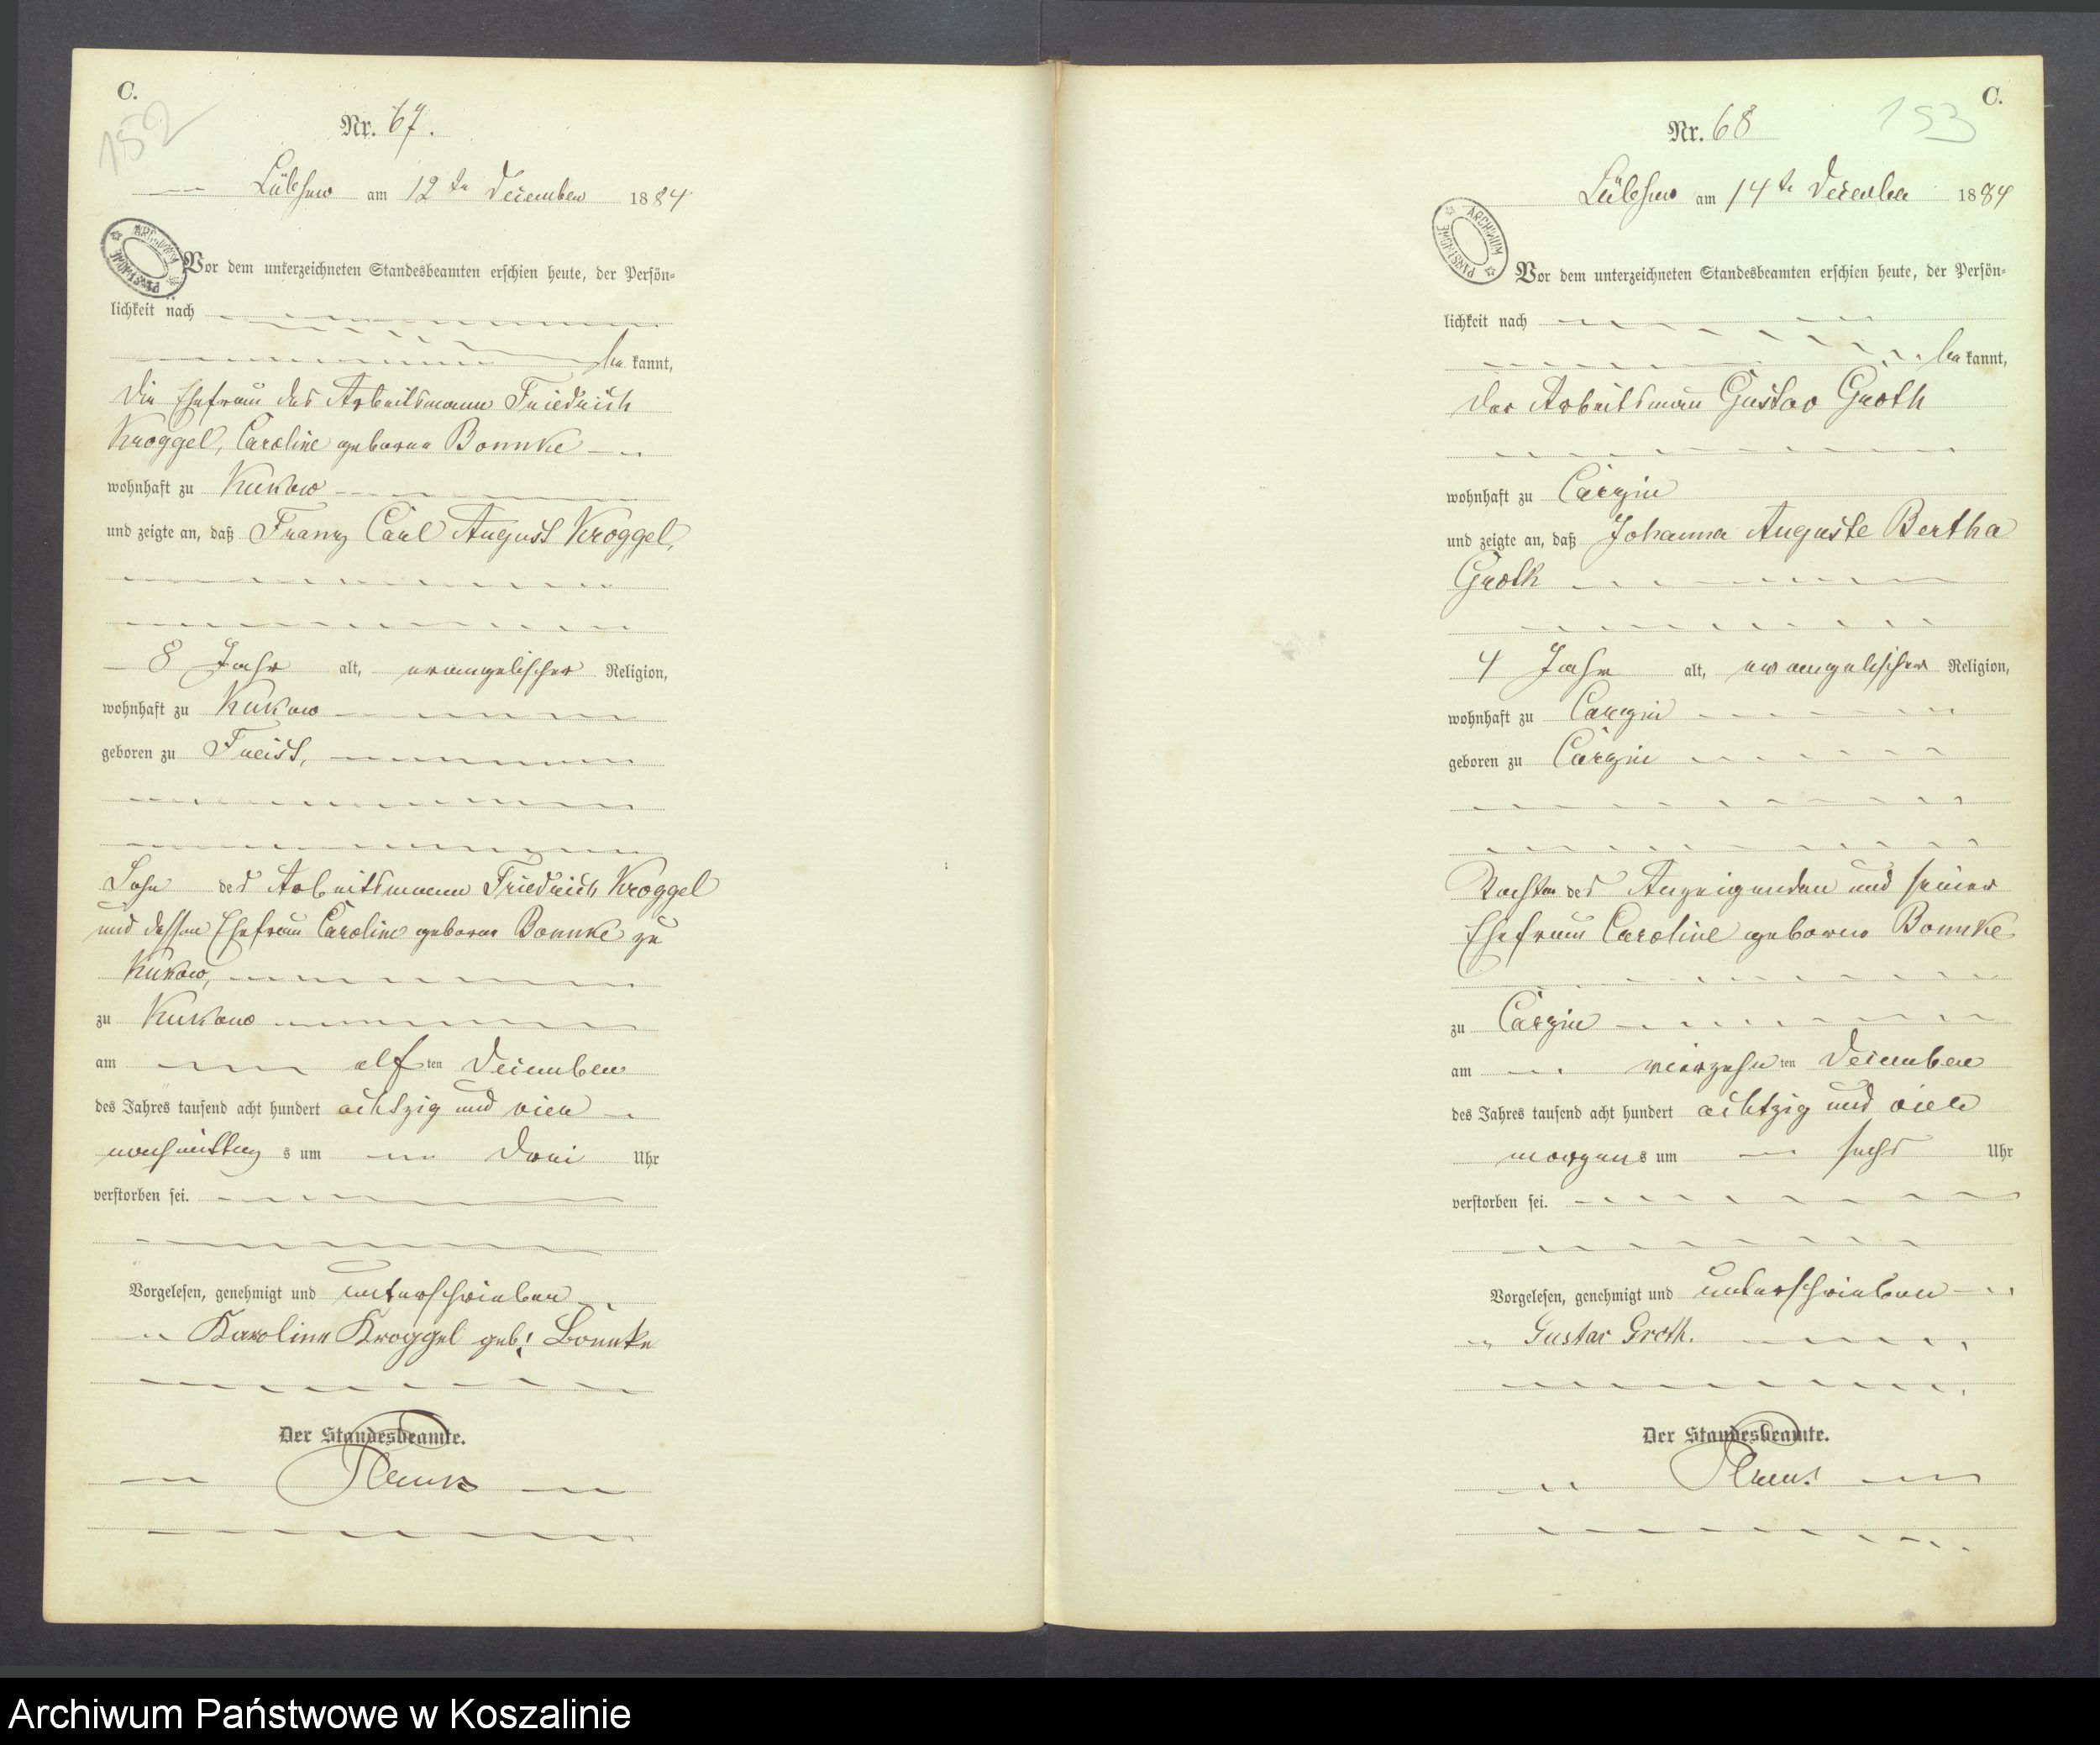 C.
152
Nr. 67.
Lübzow am 12te December 1884
ARCHIWUM PAŃSTWOWE
Vor dem unterzeichneten Standesbeamten erschien heute, der Persön=
lichkeit nach
bekannt,
die Ehefrau des Arbeitsmann Friedrich
Kroggel, Caroline geborne Bonnke
wohnhaft zu Kukow
und zeigte an, daß Franz Carl August Kroggel,
8 Jahr alt, evangelischer Religion,
wohnhaft zu Kukow
geboren zu Freist,
Sohn des Arbeitsmann Friedrich Kroggel
und dessen Ehefrau Caroline geborne Bonnke zu
Kukow,
zu Kukow
am elf ten December
des Jahres tausend acht hundert achtzig und vier
nachmittag s um drei Uhr
verstorben sei.
Vorgelesen, genehmigt und unterschrieben
Karoline Kroggel geb: Bonnke
Der Standesbeamte.
C.
153
Nr. 68
Lübzow am 14te December 1884
ARCHIWUM PAŃSTWOWE
Vor dem unterzeichneten Standesbeamten erschien heute, der Persön=
lichkeit nach
bekannt,
der Arbeitsmann Gustav Groth
wohnhaft zu Carzin
und zeigte an, daß Johanna Auguste Bertha
Groth
4 Jahr alt, evangelischer Religion,
wohnhaft zu Carzin
geboren zu Carzin
Tochter des Anzeigenden und seiner
Ehefrau Caroline geborne Bonnke
zu Carzin
am vierzehn ten December
des Jahres tausend acht hundert achtzig und vier
morgens um sechs Uhr
verstorben sei.
Vorgelesen, genehmigt und unterschrieben
Gustav Groth.
Der Standesbeamte.
Archiwum Państwowe w Koszalinie